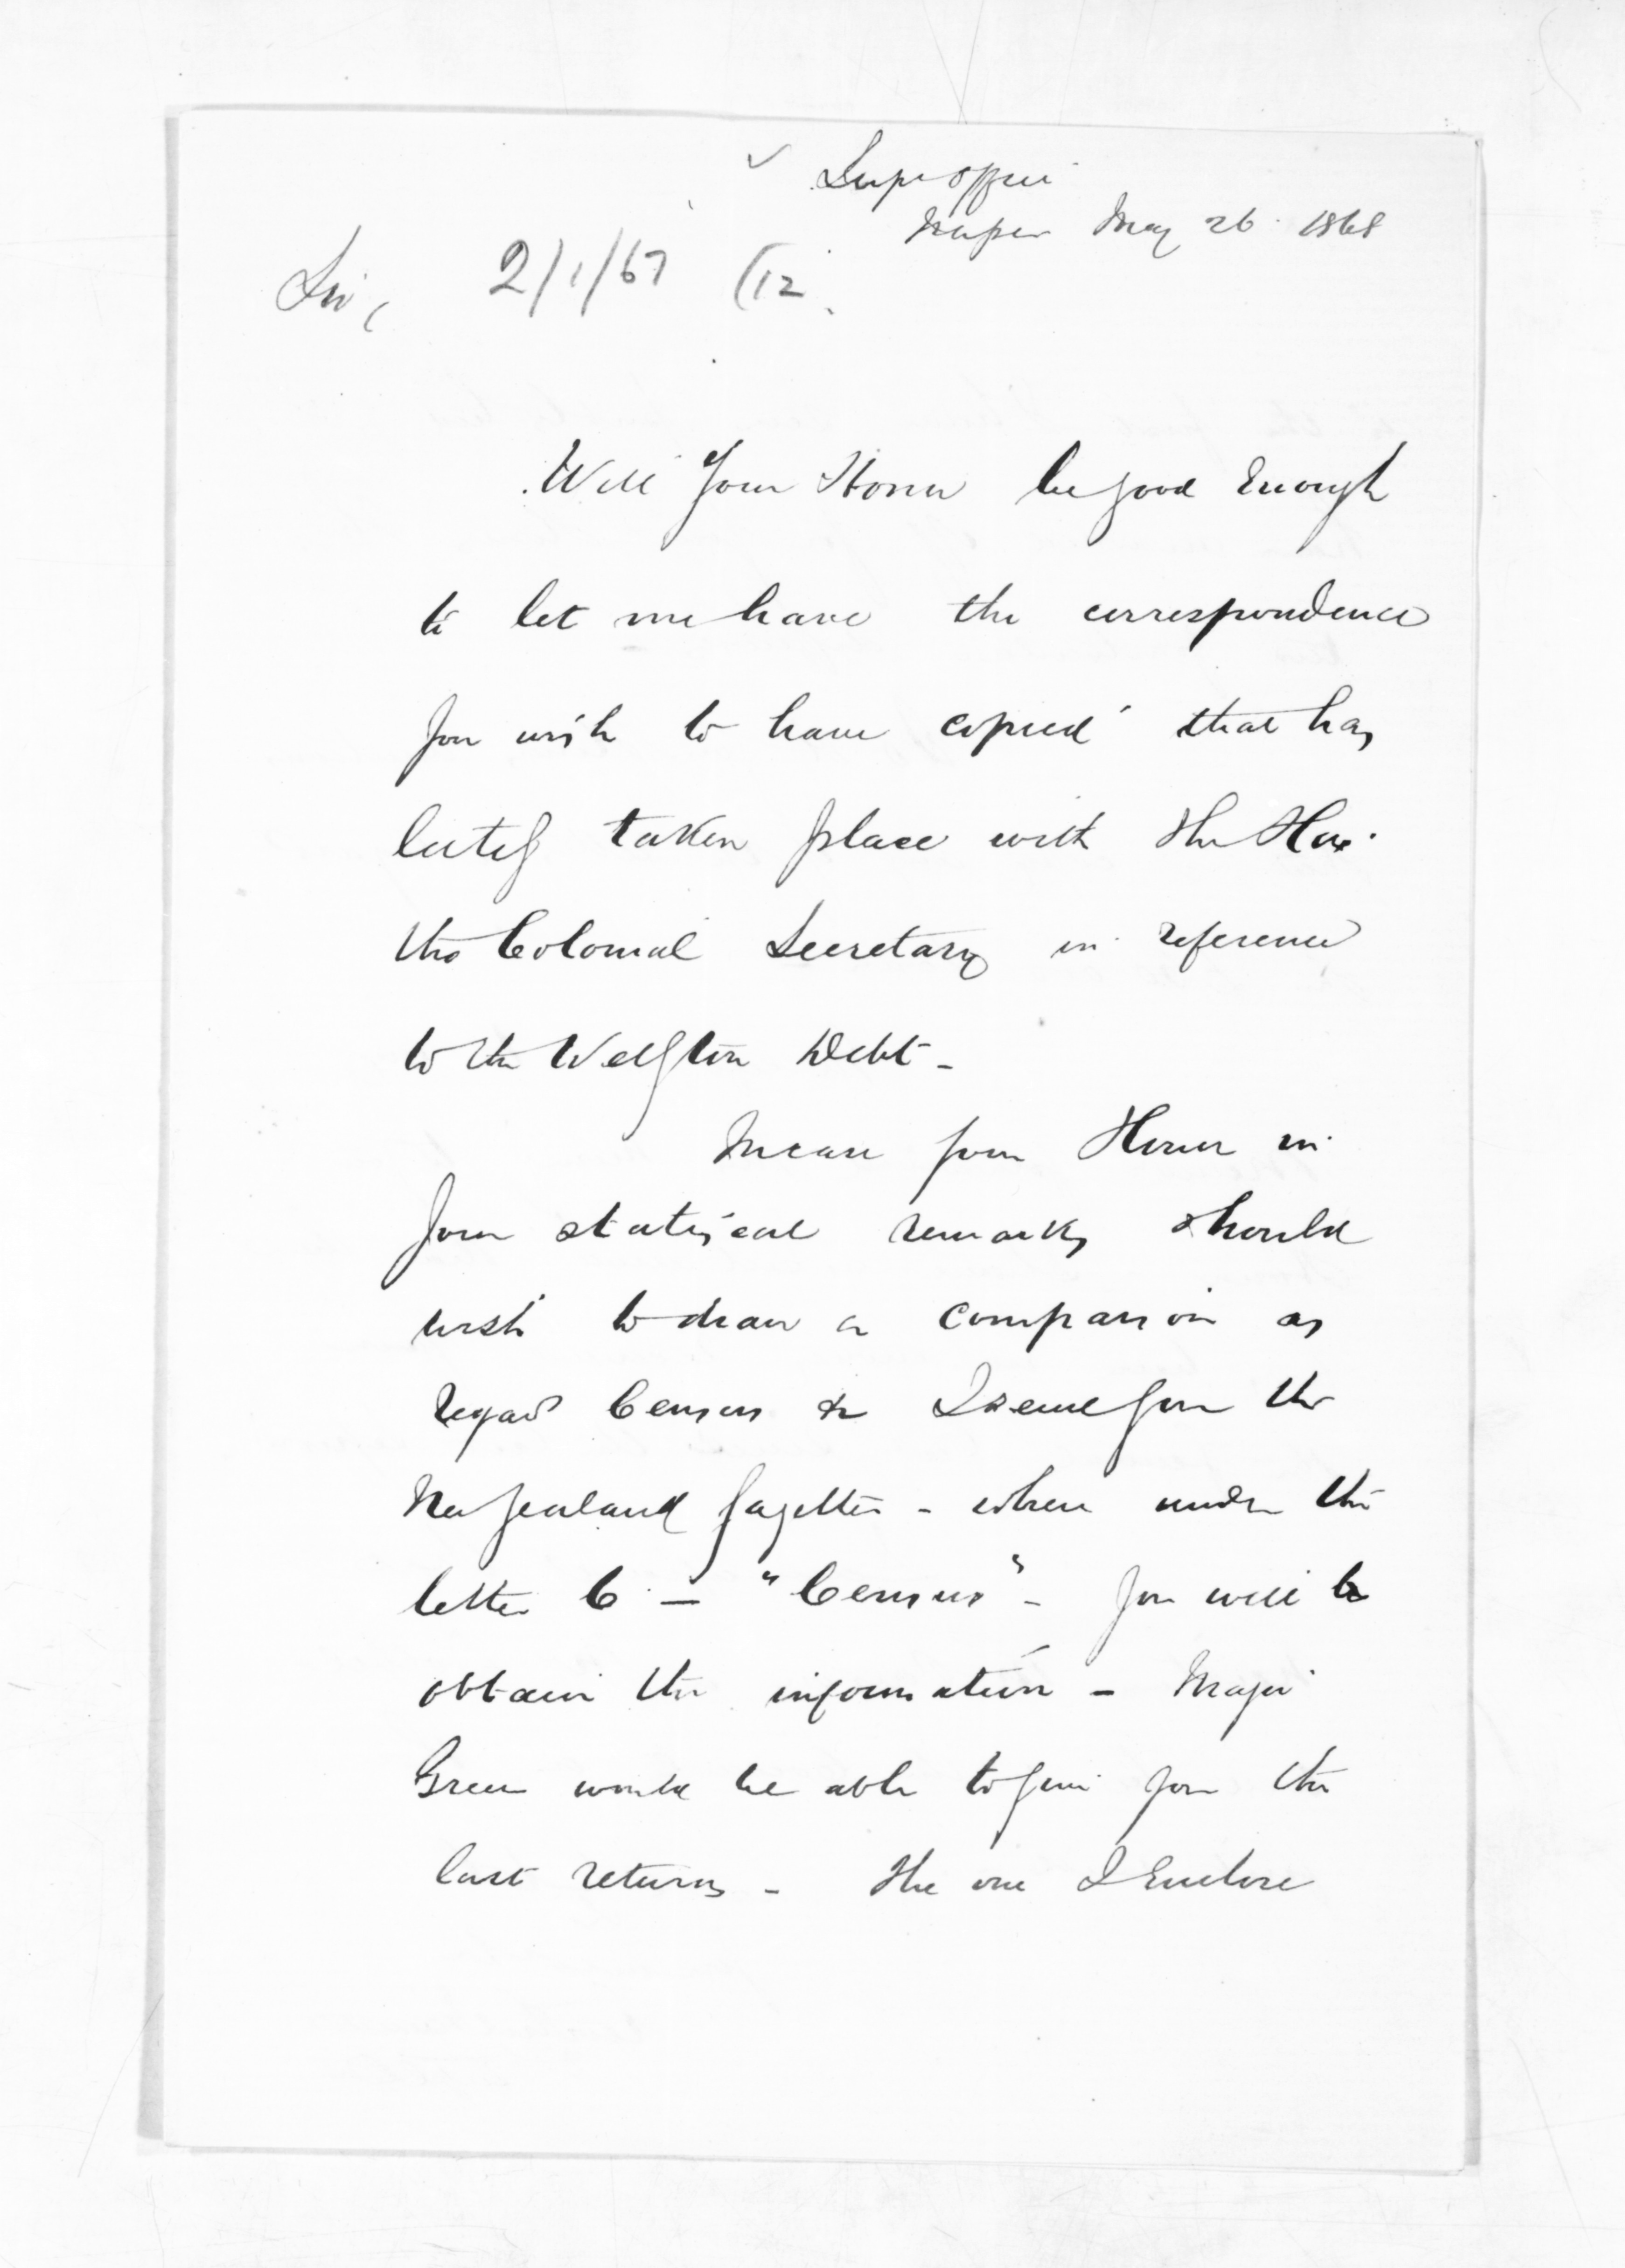 Supr Office
Napier May 26 1868
Sir, 2/1/67 (12.
Will Your Honor be good Enough
to let me have the correspondence
you wish to have copied that has
lately taken place with the Hon.
the Colonial Secretary in reference
to the Wellgton Debt -
In case your Honor in
your statiscal remarks should
wish to draw a comparison as
regard Census &c I send you the
New Zealand Gazettes - where under the
letter C - "Census" - you will
obtain the information - Major
Green would be able to give you the
last returns - The one I Enclose